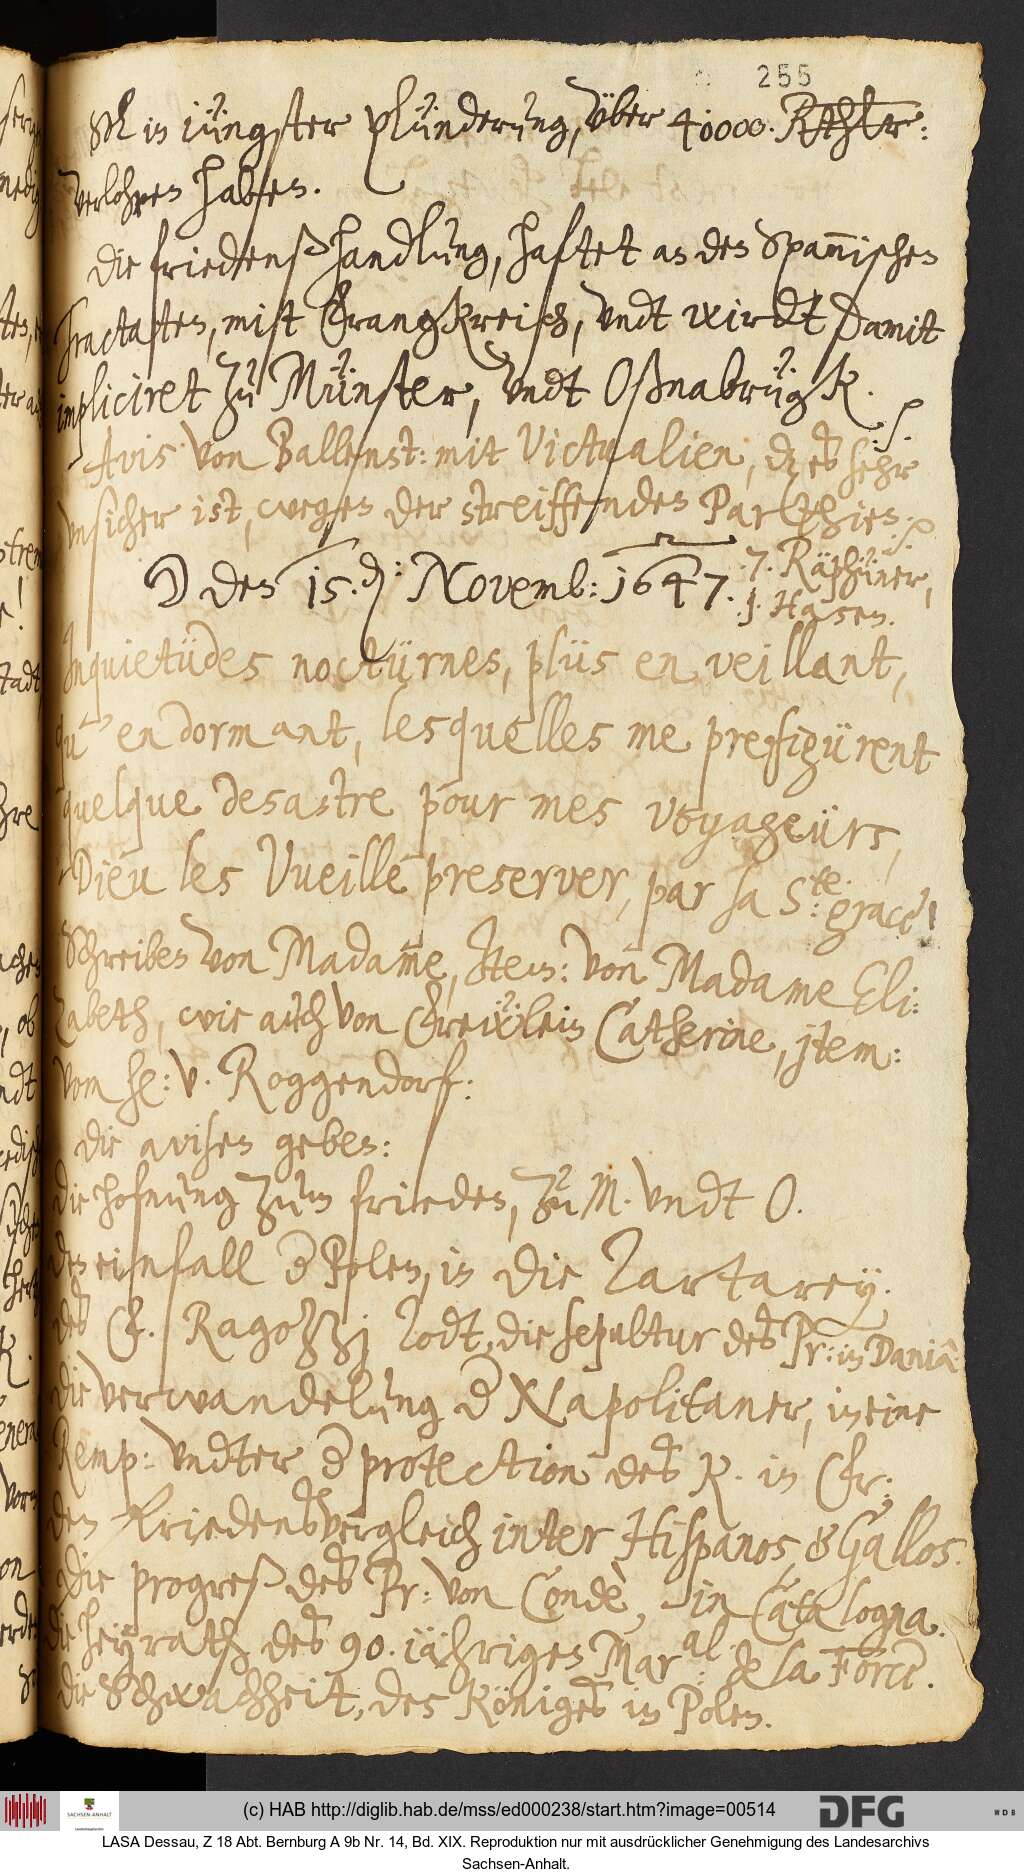 255
in iüngster plünderung, über 40000. Rthlr:
verlohren haben.
Die friedenßhandlung, haftet an den Spannischen
Tractaten, mitt Franckreich, undt wirdt damit
impliciret zu Münster, undt Oßnabrügk.
Avis von Ballenst: mit Victualien, dz es sehr
unsicher ist, wegen der streiffenden Parthien.
☽ den 15. 9: Novemb: 1647.
7. Raphüner,
1. Hasen.
Inquietüdes noctürnes, plüs en veillant,
qu' en dormant, lesquelles me prefigürent
quelque desastre pour mes voyageürs,
Dieu les Vueille preserver, par sa Ste: grace!
Schreiben von Madame, Item: von Madame Eli:
zabeth, wie auch von Freẅlein Catherine, jtem:
vom he: v. Roggendorf:
Die avisen geben:
Die hofnung zum frieden, zu M. undt O.
den einfall der Polen, in die Tartarey.
des F. Ragozzj Todt, die sepultur des Pr: in Daniâ
die verwandelung der Napolitaner, in eine
Remp: undter der protection des K. in Fr:
den Friedensvergleich inter Hispanos & Gallos.
Die progreß des Pr: von Condè, in Catalogna.
die heyrath des 90. iährigen Maral: de la Force.
die Schwachheit, des Königes in Polen.
(c) HAB http://diglib.hab.de/mss/ed000238/start.htm?image=00514
SACHSEN-ANHALT
DFG
WDB
LASA Dessau, Z 18 Abt. Bernburg A 9b Nr. 14, Bd. XIX. Reproduktion nur mit ausdrücklicher Genehmigung des Landesarchivs
Sachsen-Anhalt.